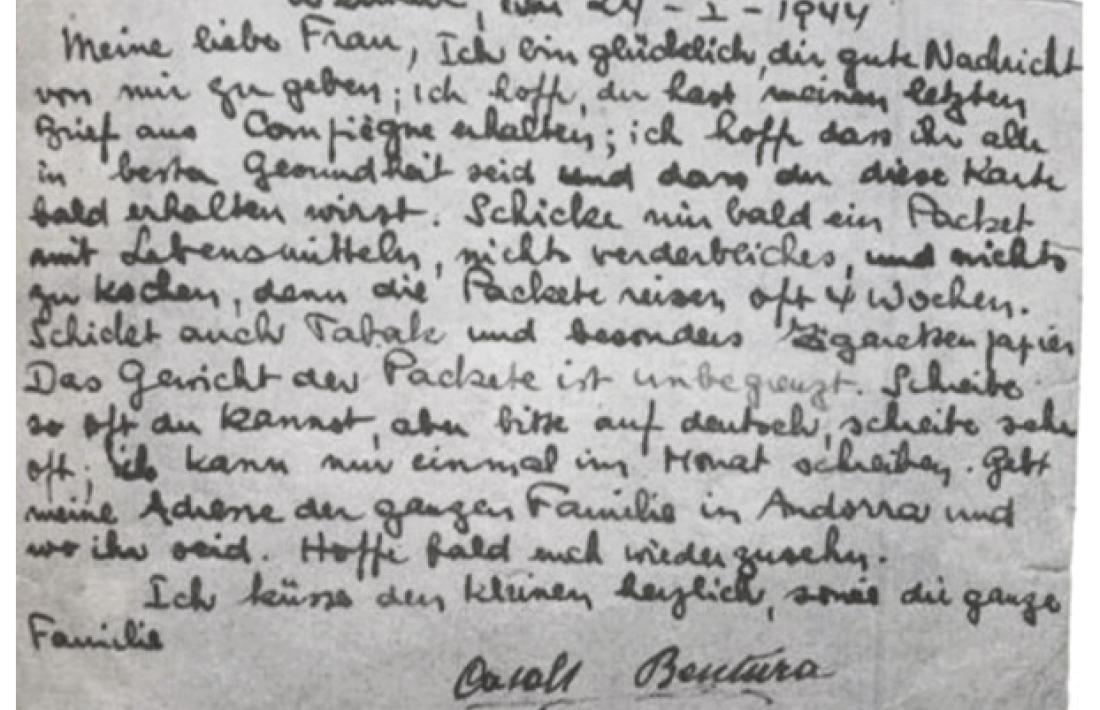 Weimar, den 24 - I - 1944
Meine liebe Frau, Ich bin glücklich, dir gute Nachricht
von mir zu geben; ich hoffe, du hast meinen letzten
Brief aus Compiègne erhalten; ich hoffe dass ihr alle
in bester Gesundheit seid und dass du diese Karte
bald erhalten wirst. Schicke mir bald ein Packet
mit Lebensmitteln, nichts verderbliches, und nichts
zu kochen, denn die Packete reisen oft 4 Wochen.
Schicket auch Tabak und besonders Zigaretten papier
Das Gewicht der Packete ist unbegrenzt. Schreibe
so oft du kannst, aber bitte auf deutsch, schreibe sehr
oft; ich kann nur einmal im Monat schreiben. Gebt
meine Adresse der ganzen Familie in Andorra und
wo ihr seid. Hoffe bald euch wiederzusehn.
Ich küsse den kleinen herzlich, sowie die ganze
Familie
Casals Bentura